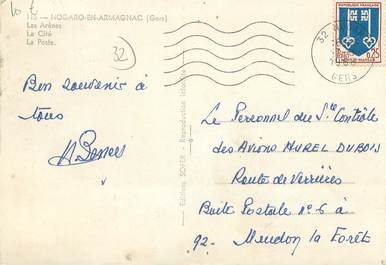 10 F
112 - NOGARO-EN-ARMAGNAC (Gers)
Les Arènes
La Cité
La Poste.
32
Bon souvenir à
tous
Editions SOFER - Reproduction interdite
32
GERS
REPUBLIQUE FRANCAISE
0,25
Le Personnel du Sté Contrôle
des Avions HUREL DUBOIS
Route de Verrières
Boite Postale N° 6 à
92. Meudon la Forêt